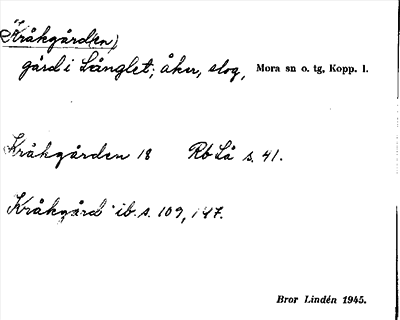 Kråkgård(en)
gård i Långlet; åker, slog, Mora sn o. tg, Kopp. l.
Kråkgården 18 Rb Lå s. 41.
Kråkgård ib. s. 109, 147.
Bror Lindén 1945.